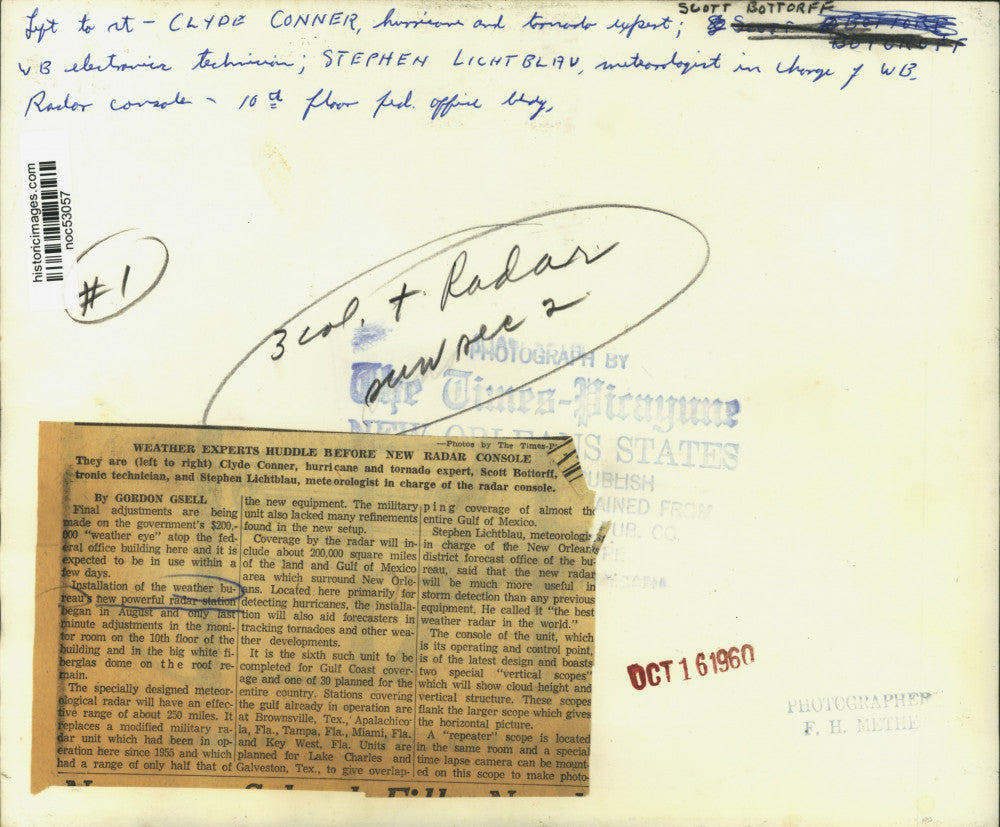 SCOTT BOTTORFF
Left to rt - CLYDE CONNER, hurricane and tornado expert;
WB electronics technician; STEPHEN LICHTBLAU, meteorologist in charge of WB.
Radar console - 10th floor fed. office bldg,
historicimages.com
noc53057
#1
3 col. + Radar
sun sec 2
PHOTOGRAPH BY
The Times-Picayune
NEW ORLEANS STATES
UBLISH
AINED FROM
UB. CO.
OCT 16 1960
PHOTOGRAPHER
F. H. METHE
—Photos by The Times-P
WEATHER EXPERTS HUDDLE BEFORE NEW RADAR CONSOLE
They are (left to right) Clyde Conner, hurricane and tornado expert, Scott Bottorff,
tronic technician, and Stephen Lichtblau, meteorologist in charge of the radar console.
By GORDON GSELL
Final adjustments are being
made on the government's $200,-
000 "weather eye" atop the fed-
eral office building here and it is
expected to be in use within a
few days.
Installation of the weather bu-
reau's new powerful radar station
began in August and only last
minute adjustments in the moni-
tor room on the 10th floor of the
building and in the big white fi-
berglas dome on the roof re-
main.
The specially designed meteor-
ological radar will have an effec-
tive range of about 250 miles. It
replaces a modified military ra-
dar unit which had been in op-
eration here since 1955 and which
had a range of only half that of
the new equipment. The military
unit also lacked many refinements
found in the new setup.
Coverage by the radar will in-
clude about 200,000 square miles
of the land and Gulf of Mexico
area which surround New Orle-
ans. Located here primarily for
detecting hurricanes, the installa-
tion will also aid forecasters in
tracking tornadoes and other wea-
ther developments.
It is the sixth such unit to be
completed for Gulf Coast cover-
age and one of 30 planned for the
entire country. Stations covering
the gulf already in operation are
at Brownsville, Tex., Apalachico-
la, Fla., Tampa, Fla., Miami, Fla.
and Key West, Fla. Units are
planned for Lake Charles and
Galveston, Tex., to give overlap-
ping coverage of almost the
entire Gulf of Mexico.
Stephen Lichtblau, meteorologis
in charge of the New Orleans
district forecast office of the bu-
reau, said that the new radar
will be much more useful in
storm detection than any previous
equipment. He called it "the best
weather radar in the world."
The console of the unit, which
is its operating and control point,
is of the latest design and boasts
two special "vertical scopes"
which will show cloud height and
vertical structure. These scopes
flank the larger scope which gives
the horizontal picture.
A "repeater" scope is located
in the same room and a special
time lapse camera can be mount-
ed on this scope to make photo-